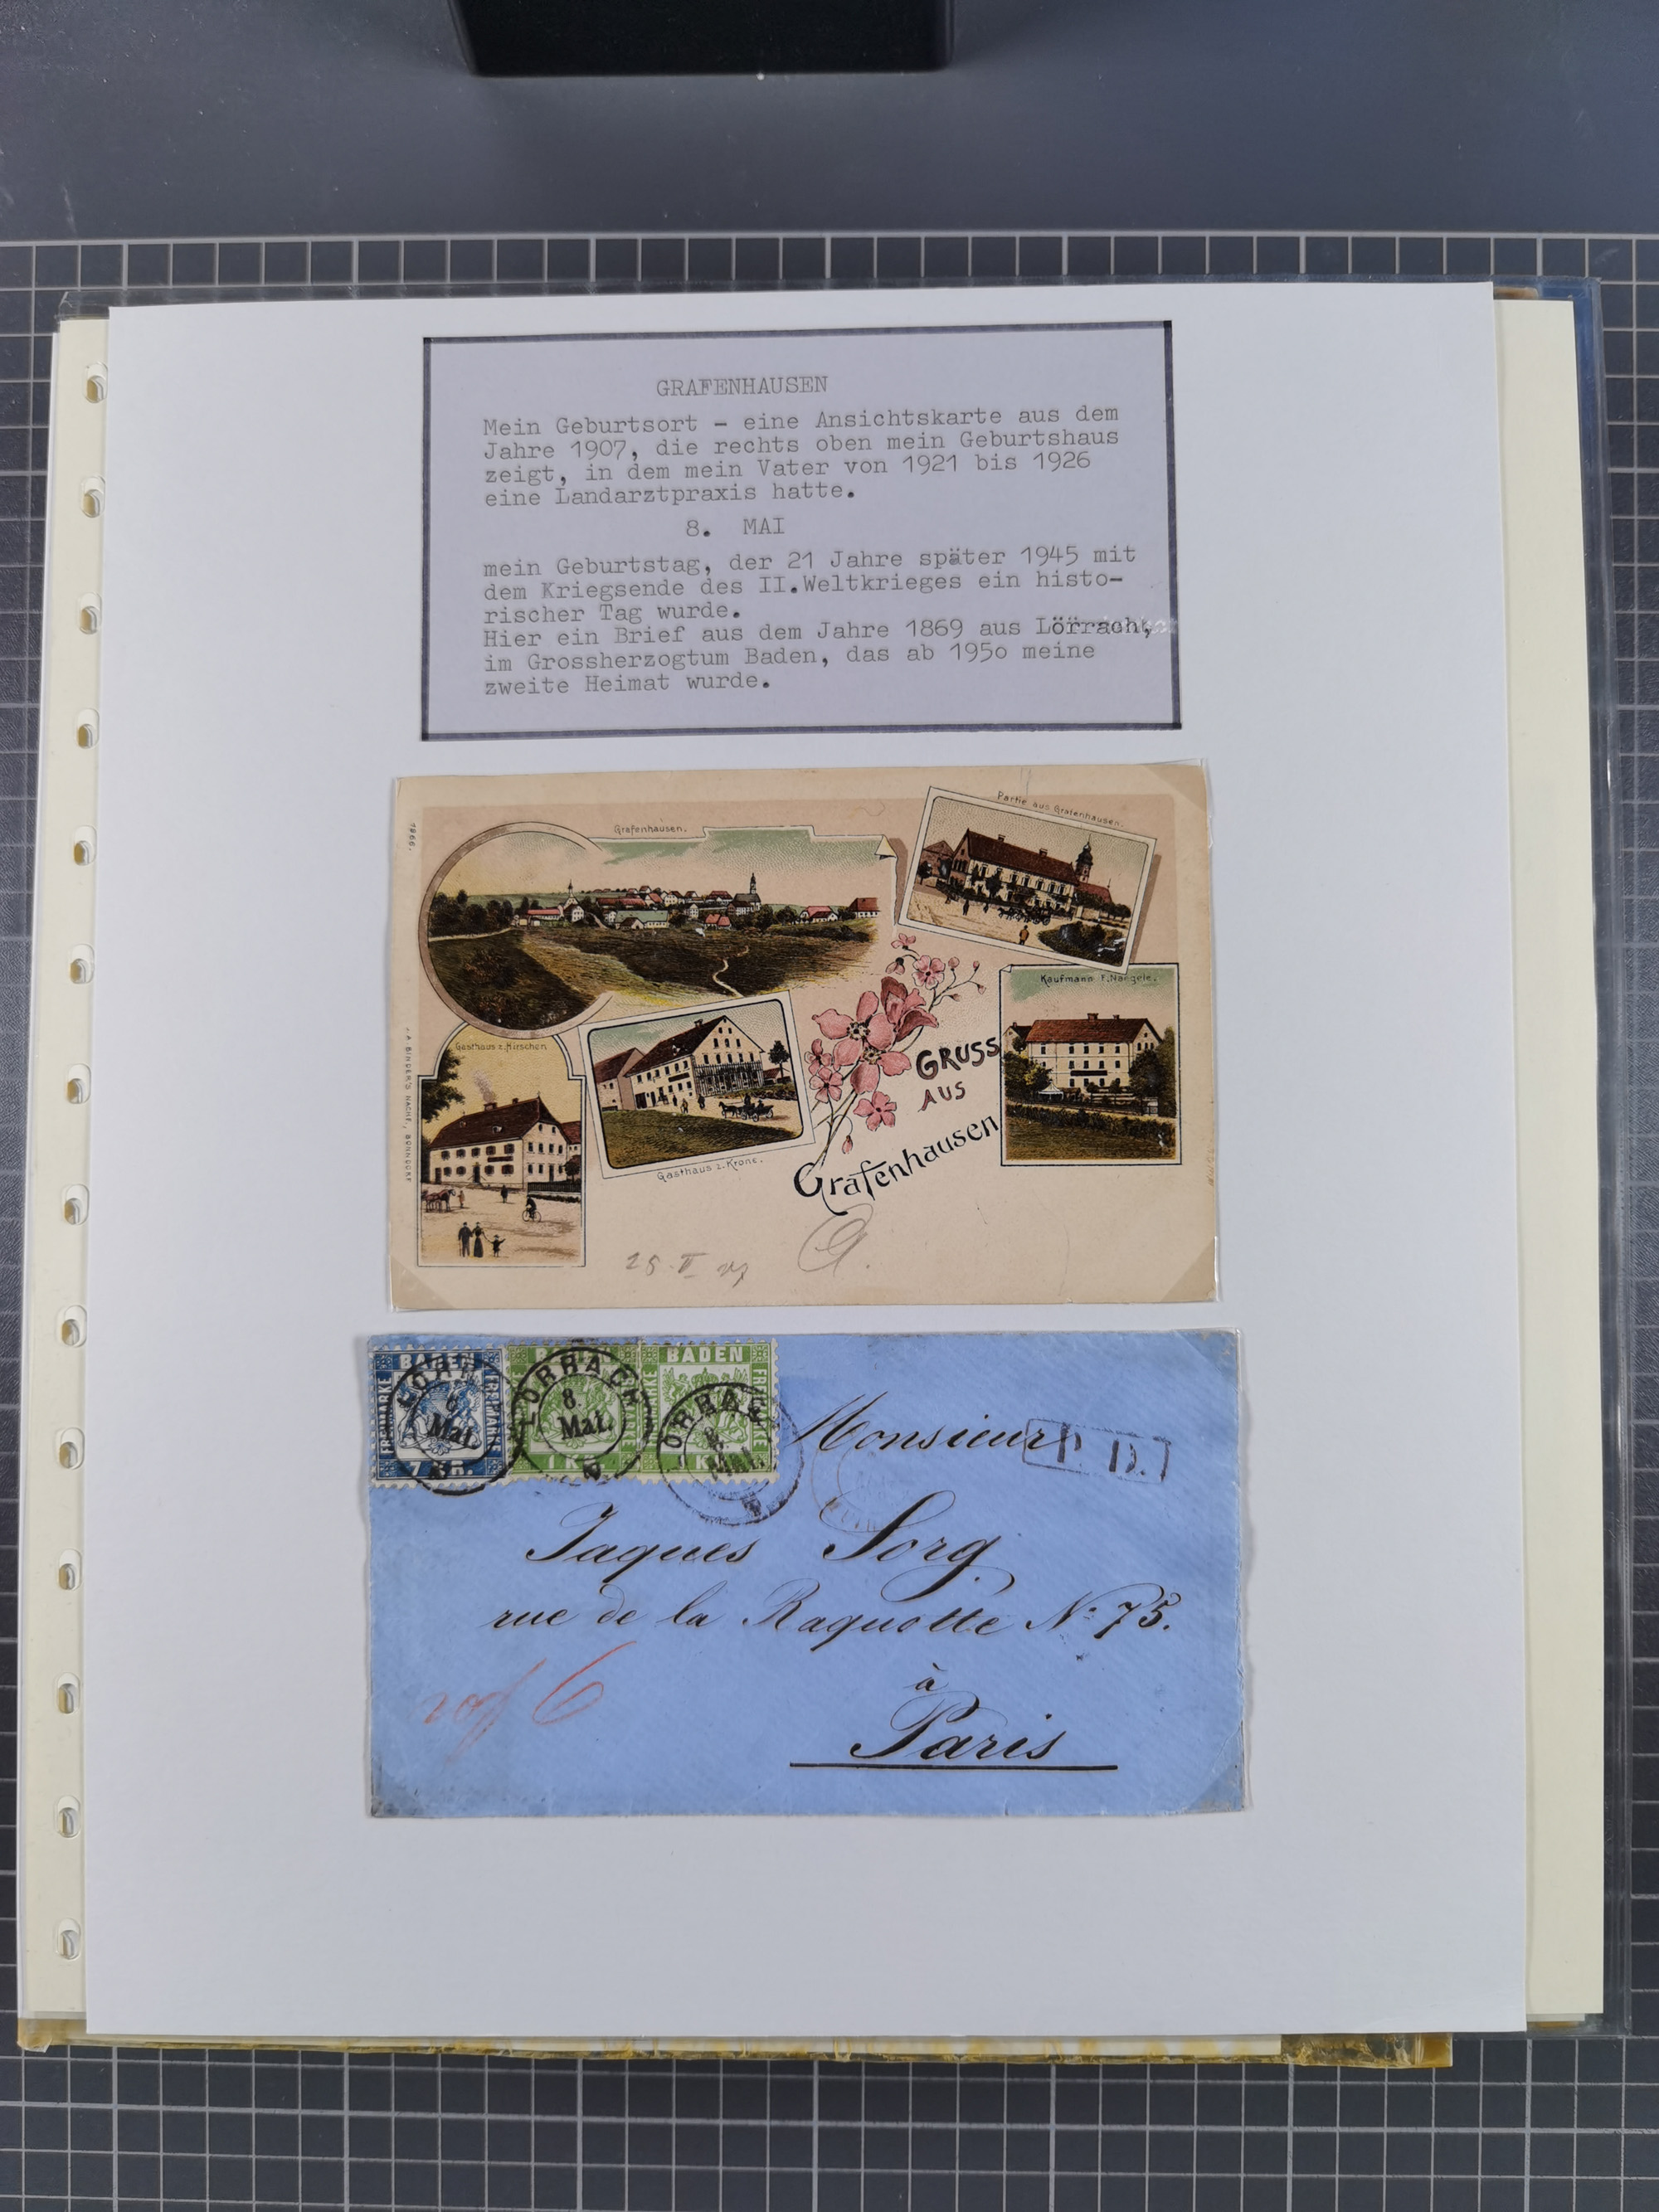 GRAFENHAUSEN
Mein Geburtsort - eine Ansichtskarte aus dem
Jahre 1907, die rechts oben mein Geburtshaus
zeigt, in dem mein Vater von 1921 bis 1926
eine Landarztpraxis hatte.
8. MAI
mein Geburtstag, der 21 Jahre später 1945 mit
dem Kriegsende des II.Weltkrieges ein histo-
rischer Tag wurde.
Hier ein Brief aus dem Jahre 1869 aus Lörrach,
im Grossherzogtum Baden, das ab 195o meine
zweite Heimat wurde.
Partie aus Grafenhausen.
Grafenhausen.
Kaufmann F. Naegele.
Gasthaus z. Hirschen
Gasthaus z. Krone.
GRUSS
AUS
Grafenhausen
J. A. BINDER'S NACHF., BONNDORF
BADEN
FREIMARKE
7 KR.
LÖRRACH
8.
Mai.
1 KR
BADEN
FREIMARKE
8.
Mai.
Monsieur
P. D.
Jaques Sorg
rue de la Raquotte No 75.
à
Paris